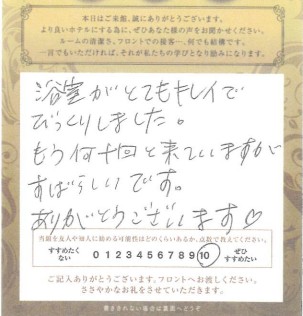 本日はご来館、誠にありがとうございます。
より良いホテルにする為に、ぜひあなた様の声をお聞かせください。
ルームの清潔さ、フロントでの接客…、何でも結構です。
一言でもいただければ、それが私たちの学びとなり励みになります。
浴室がとてもキレイで
びっくりしました。
もう何十回と来ていますが
すばらしいです。
ありがとうございます♡
当館を友人や知人に勧める可能性はどのくらいあるか、点数で教えてください。
すすめたくない 0 1 2 3 4 5 6 7 8 9 10 ぜひすすめたい
ご記入ありがとうございます。フロントへお渡しください。
ささやかなお礼をさせていただきます。
書ききれない場合は裏面へどうぞ